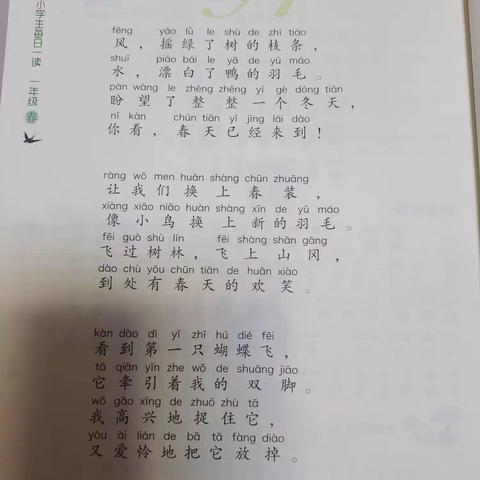 小学生每日一读·一年级 春
fēng yáo lǜ le shù de zhī tiáo
风，摇绿了树的枝条，
shuǐ piǎo bái le yā de yǔ máo
水，漂白了鸭的羽毛。
pàn wàng le zhěng zhěng yí gè dōng tiān
盼望了整整一个冬天，
nǐ kàn chūn tiān yǐ jīng lái dào
你看，春天已经来到！
ràng wǒ men huàn shàng chūn zhuāng
让我们换上春装，
xiàng xiǎo niǎo huàn shàng xīn de yǔ máo
像小鸟换上新的羽毛。
fēi guò shù lín fēi shàng shān gāng
飞过树林，飞上山冈，
dào chù yǒu chūn tiān de huān xiào
到处有春天的欢笑。
kàn dào dì yī zhī hú dié fēi
看到第一只蝴蝶飞，
tā qiān yǐn zhe wǒ de shuāng jiǎo
它牵引着我的双脚。
wǒ gāo xìng de zhuō zhù tā
我高兴地捉住它，
yòu ài lián de bǎ tā fàng diào
又爱怜地把它放掉。